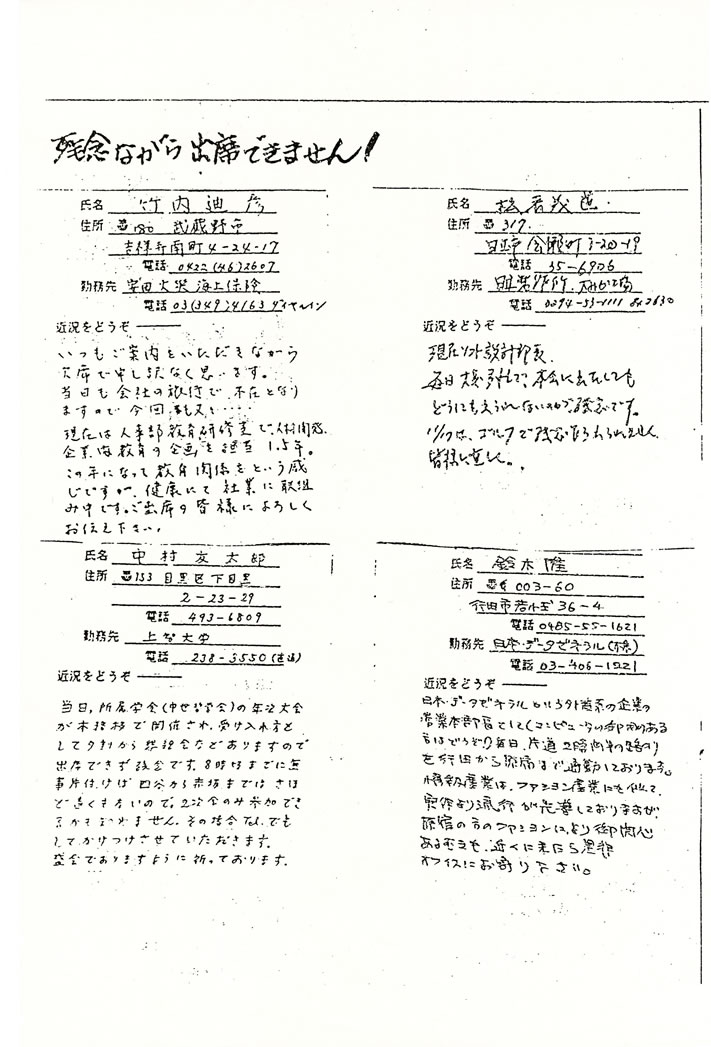 残念ながら出席できません!
氏名 竹内迪彦
住所 〠180 武蔵野市
吉祥寺南町4-24-17
電話 0422(46)2607
勤務先 安田火災海上保険
電話 03(349)4163 ダイヤルイン
近況をどうぞ
いつもご案内をいただきながら
欠席で申し訳なく思います。
当日も会社の旅行で、不在となり
ますので今回も又‥‥
現在は人事部教育研修室で、人材開発、
企業内教育の企画を担当 1.5年。
この年になって教育関係をという感
じですが、健康にて社業に取組
み中です。ご出席の皆様によろしく
お伝え下さい。
氏名
住所 〠317.
日立市会瀬町3-20-19
電話 35-6906
勤務先 日立製作所
電話 0294-53-1111 2630
近況をどうぞ
現在ソフト設計部長.
毎日
どうにも
ゴルフで
皆様に宜しく。
氏名 中村友太郎
住所 〠153 目黒区下目黒
2-23-29
電話 493-6809
勤務先 上智大学
電話 238-3550(直通)
近況をどうぞ
当日,所属学会(中世哲学会)の年次大会
が本務校で開催され、受け入れ方と
して夕刻から懇親会などありますので
出席できず残念です。8時頃までに無
事片付けば四谷から赤坂まではさほ
ど遠くもないので、2次会のみ参加でき
るかもしれません。その場合TELでも
してかけつけさせていただきます。
盛会でありますように祈っております。
氏名 鈴木隆
住所 〠 003-60
行田市若小玉36-4
電話 0485-55-1621
勤務先 日本・データゼネラル(株)
電話 03-406-1221
近況をどうぞ
日本・データゼネラルという外資系の企業の
営業本部長としてコンピュータの御用のある
方はどうぞ!)毎日、片道2時間半の道のり
を行田から原宿まで通勤しております。
情報産業は、ファション産業にも似て、
実体より流行が先導しておりますが、
原宿の方のファションに、より御関心
あるむきも、近くに来たら是非
オフィスにお寄り下さい。